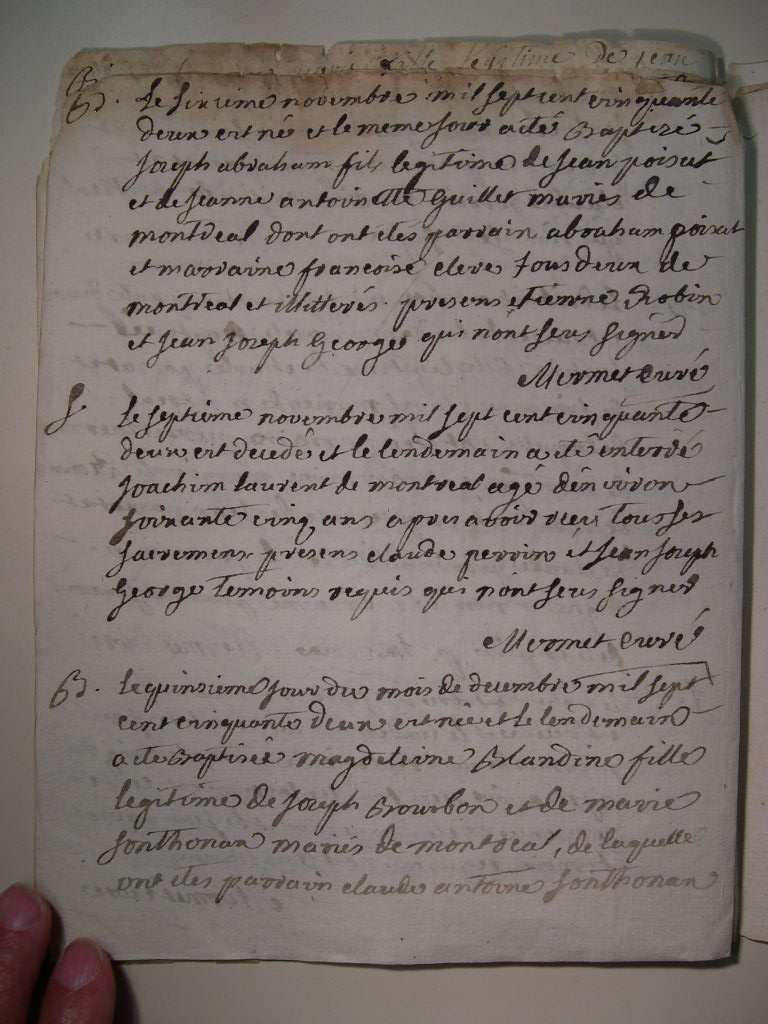 fille legitime de jean
B. Le sixieme novembre mil sept cent cinquante
deux est né et le meme jour a été Baptizé
joseph abraham fils legitime de jean poisat
et de jeanne antoinette Guillet mariés de
montreal dont ont etes parrain abraham poisat
et marraine francoise clere tous deux de
montreal et illiterés. presens etienne Robin
et jean joseph George qui n'ont seus signer
Mermet curé
S Le septieme novembre mil sept cent cinquante
deux est decedé et le lendemain a été enterré
joachim laurent de montreal agé d'environ
soixante cinq ans apres avoir recu tous ses
sacremens presens claude perrin et jean joseph
George temoins requis qui n'ont seus signer
Mermet curé
B. Le quinsieme jour du mois de decembre mil sept
cent cinquante deux est née et le lendemain
a ete Baptisée magdeleine Blandine fille
legitime de joseph Bourbon et de marie
sonthonax mariés de montreal, de laquelle
ont etes parrain claude antoine sonthonax